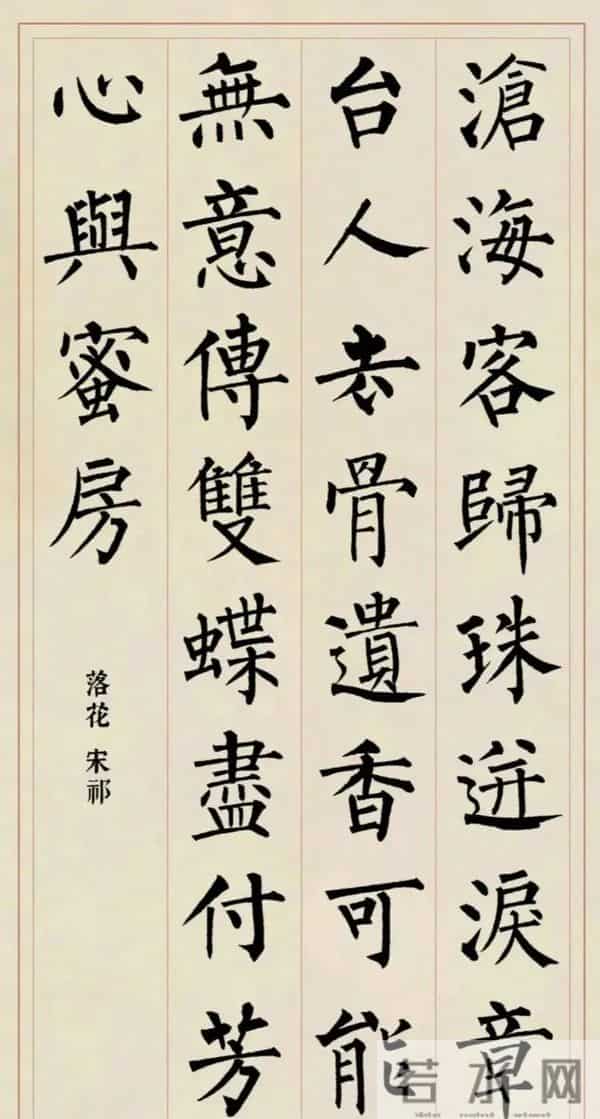 滄海客歸珠迸淚章
台人去骨遺香可能
無意傳雙蝶盡付芳
心與蜜房
落花 宋祁